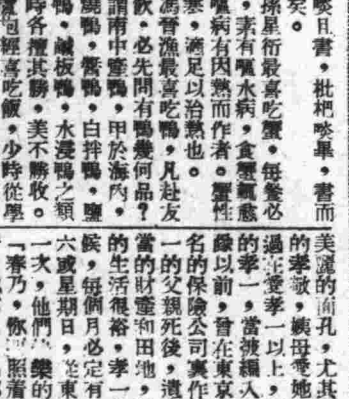 啖且書，枇杷啖畢，書而
矣。
孫星衍最喜吃蟹，每餐必
，素有嘔水病，食蟹輒
嘔病有因熱而作者。蟹性
寒，適足以治熱也。
馮晉漁最喜吃鴨，凡赴友
飲，必先問有鴨幾何品？
謂南中產鴨，甲於海內，
燒鴨，醬鴨，白拌鴨，鹽
鴨，鹹板鴨，水浸鴨之類
時各擅其勝，美不勝收。
包經喜吃飯，少時從學
美麗的面孔，尤其
的孝敏，姨母愛她
過在愛孝一以上，
的孝一，當被編入
錄以前，曾在東京
名的保險公司裏作
一的父親死後，遺
當的財產和田地，
的生活很裕，孝一
候，每個月必定有
六或星期日，從東
一次，他們樂的
「春乃，你照着